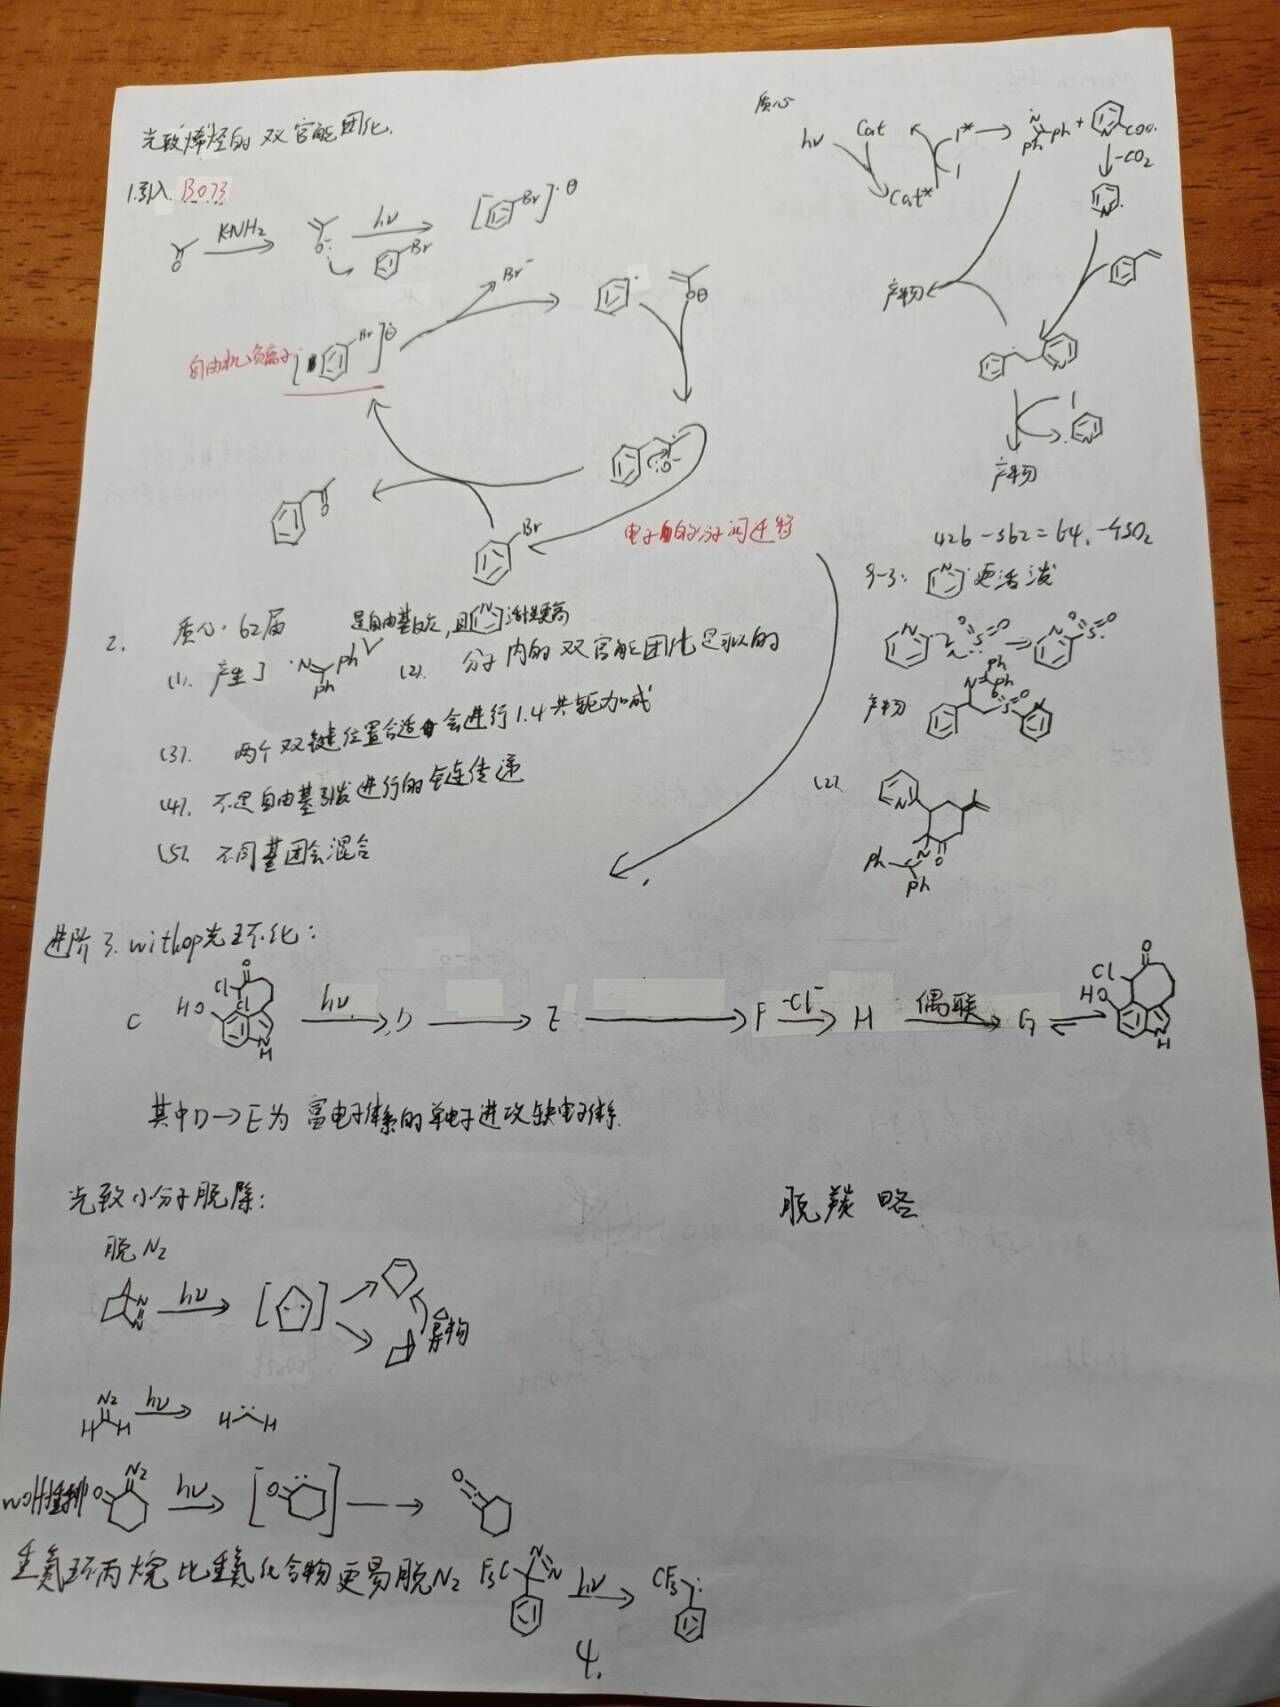 光致烯烃的双官能团化.
1.引入. B073
KNH2
hν
Br
Br
Br-
自由机负离子
Br
Br
电子的分子间迁移
2. 质心·62届
是自由基反应,且 N 活性更高
(1). 产生了 ·N Ph Ph
(2). 分子内的双官能团化是类似的
(3). 两个双键位置合适会进行1.4共轭加成
(4). 不是自由基引发进行的链传递
(5). 不同基团会混合
质心
hν Cat 1* → N Ph Ph + N COO·
Cat* 1
-CO2
N
产物
N
1
N
产物
426-362=64, -4SO2
N 更活泼
N O S O → N O S O
产物 N Ph Ph O S O N
(2).
N
N O
Ph
Ph
进阶 3. withop光环化:
C HO Cl O Cl N H hν D → E → F -Cl- H 偶联 G ⇌ Cl O HO N H
其中D→E为富电子体系的单电子进攻缺电子体系.
光致小分子脱除:
脱羰 略
脱N2
N N hν
异构
N2 H H hν H H
wolff重排 O N2 hν O O
重氮环丙烷比重氮化合物更易脱N2 F3C N N hν CF3
4.